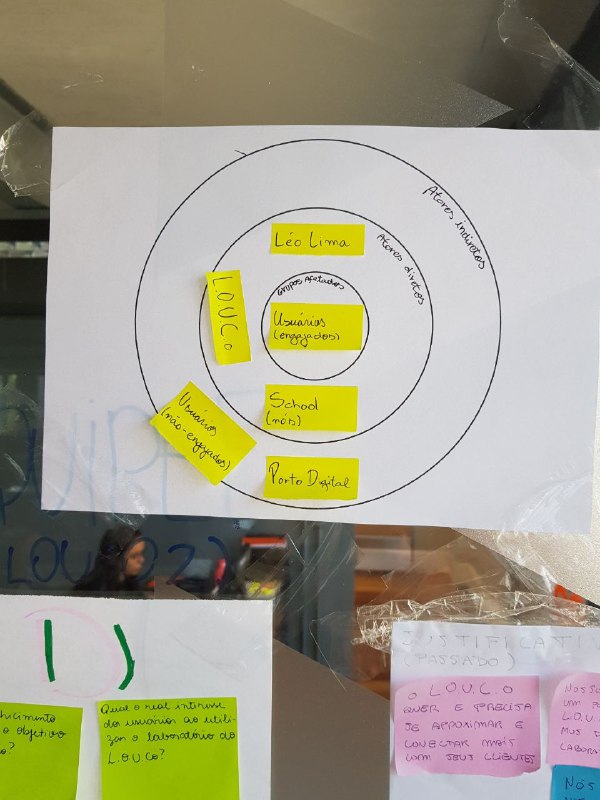 Atores indiretos
Léo Lima
Atores diretos
L.O.U.Co
Grupos Afetados
Usuários
(engajados)
School
(nós)
Usuários
(não-engajados)
Porto Digital
LOU
1)
o objetivo
o?
Qual o real interesse
dos usuários ao utili-
zar o laboratório do
L.O.U.Co?
JUSTIFICATIV
(PASSADO)
O L.O.U.C.O
QUER E PRECISA
SE APROXIMAR E
CONECTAR MAIS
COM SEUS CLIENTES
NOSS
UM
L.O.U
MUS
LABORA
NÓS